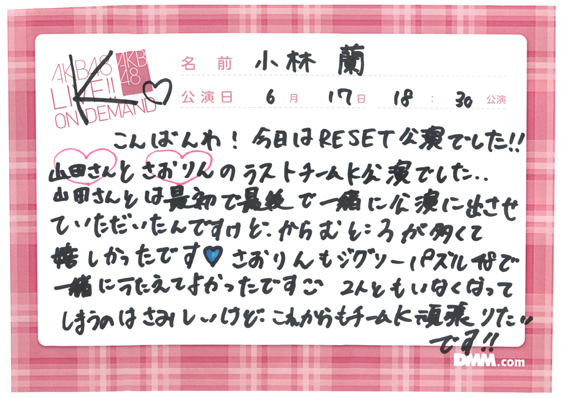 AKB48
LIVE!!
ON DEMAND
AKB
48
K
名前 小林 蘭
公演日 6月 17日 18:30 公演
こんばんわ!今日はRESET公演でした!!
山田さんとさおりんのラストチームK公演でした..
山田さんとは最初で最後で一緒に公演に出させ
ていただいたんですけど、からむところが多くて
嬉しかったです💙 さおりんもジグソーパズル48で
一緒にうたえてよかったです 2人ともいなくなって
しまうのはさみしいけど、これからもチームK頑張りたい
です!!
DMM.com